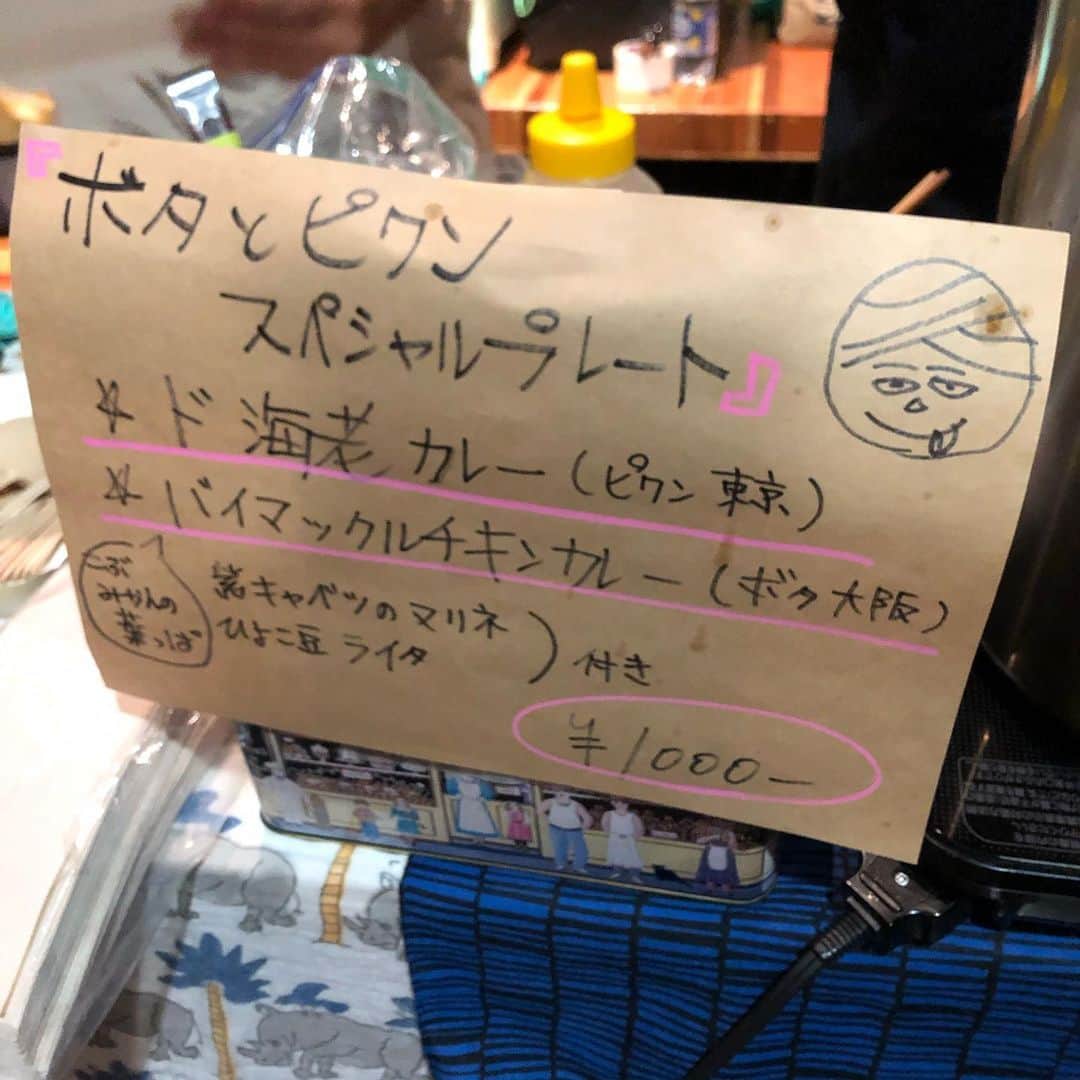 『ボタとピワン
スペシャルプレート』
☆ド海老カレー(ピワン東京)
☆バイマックルチキンカレー(ボタ大阪)
こぶ
みかんの
葉っぱ
紫キャベツのマリネ
ひよこ豆ライタ
)付き
¥1000ー